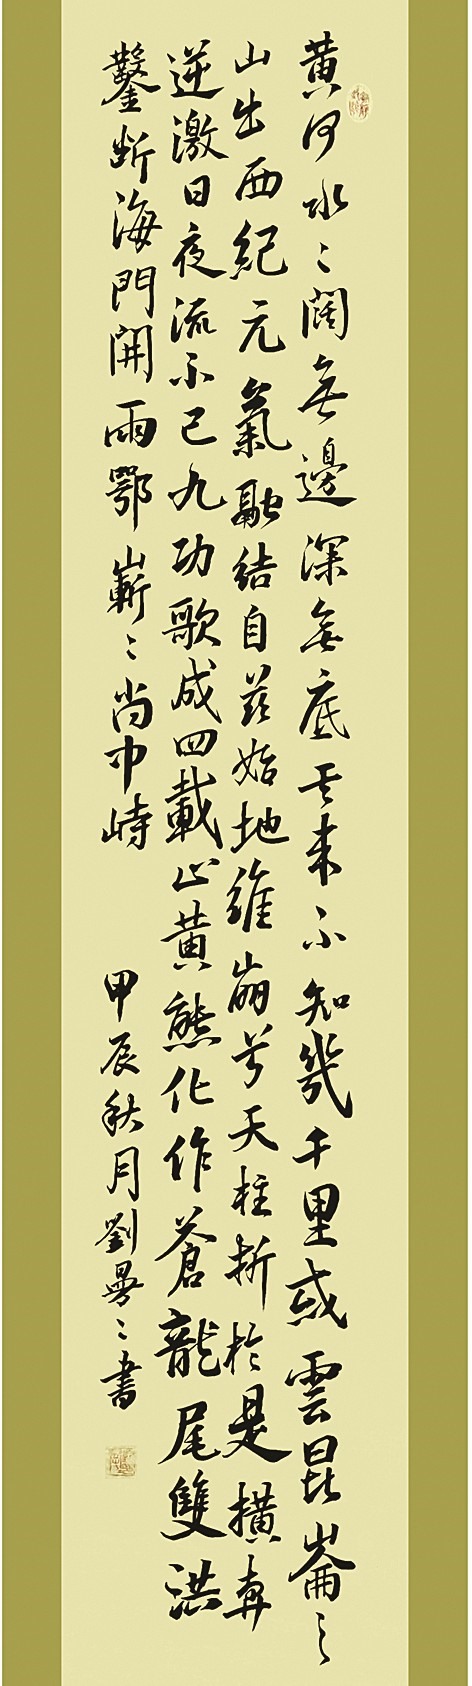 黄河水〻闊無邊深無底其来不知幾千里或雲昆崙之
山出西紀元氣融結自茲始地維崩兮天柱折於是橫奔
逆激日夜流不已九功歌成四載止黄熊化作蒼龍尾雙洪
鑿断海門開兩鄂嶄〻尚中峙
甲辰秋月劉曼〻書